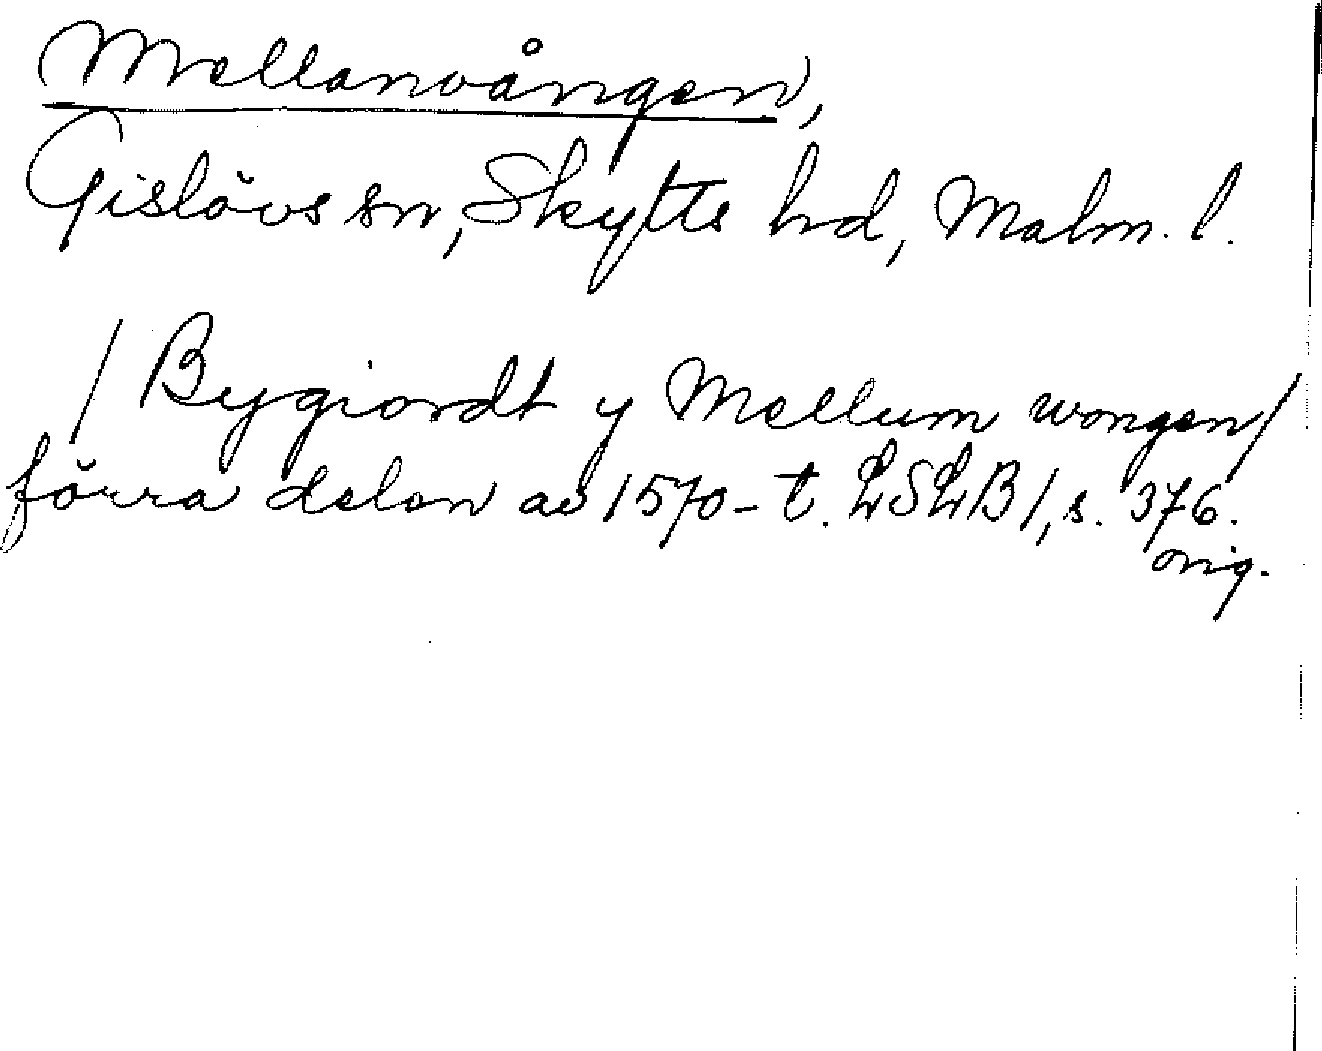 Mellanvången,
Gislövs sn, Skytts hd, Malm. l.
/ Bygiordt y Mellum wongen/
förra delen av 1570-t. LSLB 1, s. 376.
orig.